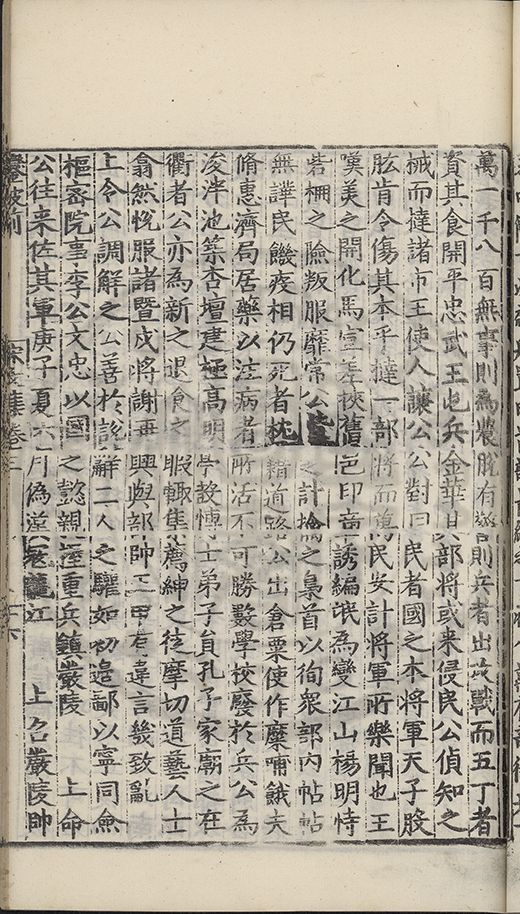 萬一千八百無事則為農脫有警則兵者出攻戰而五丁者
資其食開平忠武王屯兵金華其部將或来侵民公偵知之
械而撻諸市王使人讓公公對曰民者國之本將軍天子股
肱肯令傷其本乎撻一部將而萬民安計將軍所樂聞也王
嘆美之開化馬宣差挾舊邑印章誘編氓為變江山楊明恃
砦柵之險叛服靡常公皆之計擒之梟首以徇衆部內帖帖
無譁民饑疫相仍死者枕藉道路公出倉粟使作糜哺餓夫
脩惠濟局居藥以注病者所活不可勝數學校廢於兵公為
浚泮池築杏壇建極高明亭設博士弟子員孔子家廟之在
衢者公亦為新之退食之暇輙集薦紳之徒摩切道藝人士
翕然悅服諸暨戍將謝再興與部帥王甲有違言幾致亂
上令公調解之公善於說辭二人之驩如初造鄙以寧同僉
樞密院事李公文忠以國之懿親涖重兵鎮嚴陵 上命
公往来佐其軍庚子夏六月偽漢冦龍江 上召嚴陵帥
宋文集卷三